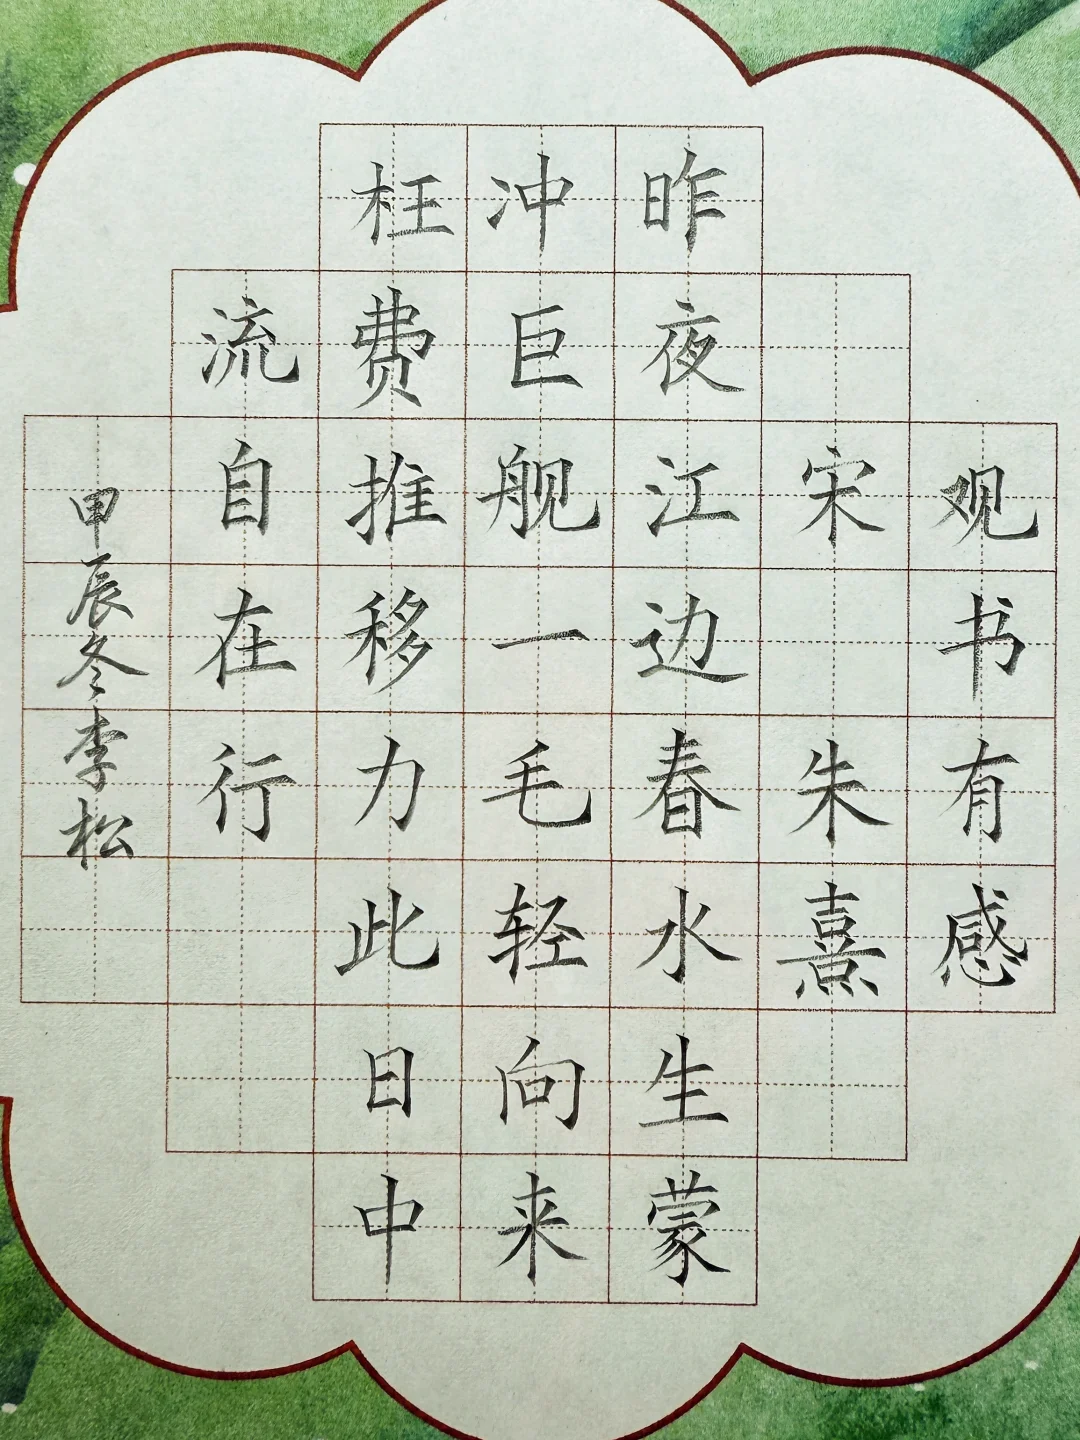 观书有感
宋朱熹
昨夜江边春水生蒙
冲巨舰一毛轻向来
枉费推移力此日中
流自在行
甲辰冬李松